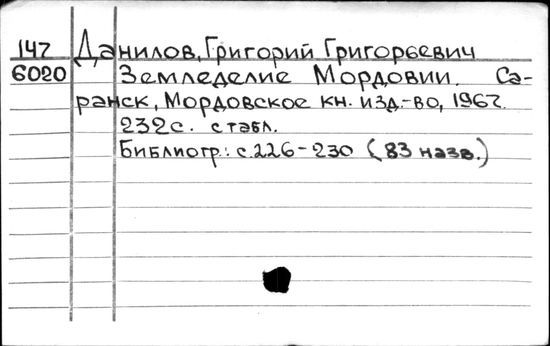 147 Данилов, Григорий Григорьевич
6020 Земледелие Мордовии. Са-
ранск, Мордовское кн. изд-во, 1967.
232с. с табл.
Библиогр.: с.226-230 (83 назв.)